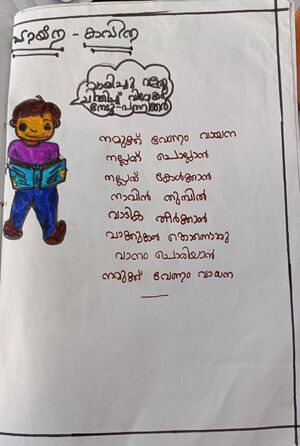 വായന - കവിത
വായിച്ചു വളരൂ
ചിന്തിച്ച് വിവേകം
നേടൂ
നമുക്ക് വേണം വായന
നല്ലത് ചൊല്ലാൻ
നല്ലത് കേൾക്കാൻ
നാവിൻ തുമ്പിൽ
വാടിക തീർക്കാൻ
വാക്കുകൾ കൊണ്ടൊരു
വാനം ചൊരിയാൻ
നമുക്ക് വേണം വായന